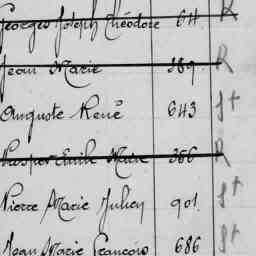 Georges Joseph Théodore 611 R
Jean Marie 389 R
Auguste René 643 St
Prosper Emile Marie 366 R
Pierre Marie Julien 901 St
Jean Marie François 686 St